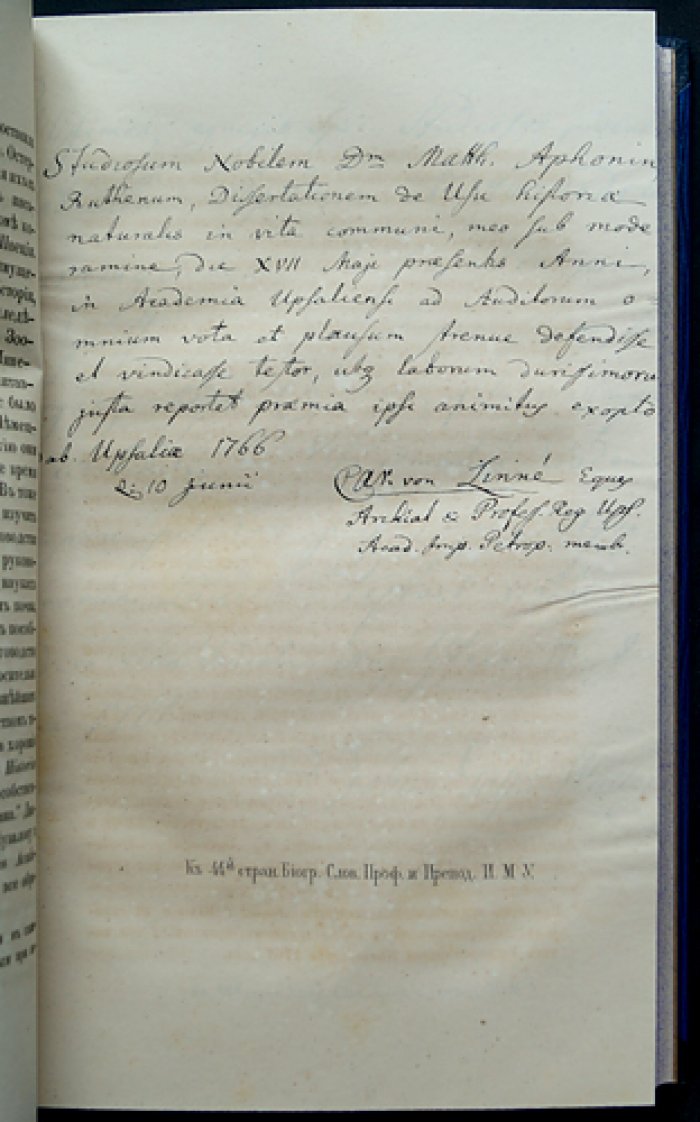 Studiosum Nobilem Dm Matth. Aphonin,
Ruthenum, Dissertationem de Usu historiæ
naturalis in vita communi, meo sub mode
ramine, die XVII Maji præsentis Anni,
in Academia Upsaliensi ad Auditorum o-
mnium vota et plausum strenue defendisse
et vindicasse testor, utq laborum durissimorum
justa reportet præmia ipsi animitus exopto
ab Upsaliæ 1766
d. 10 junii
Car. von Linné Eques
Archiat & Profess. Reg Ups.
Acad. Imp. Petrop. memb.
Къ 44й стран. Біогр. Слов. Проф. и Препод. И. М. У.